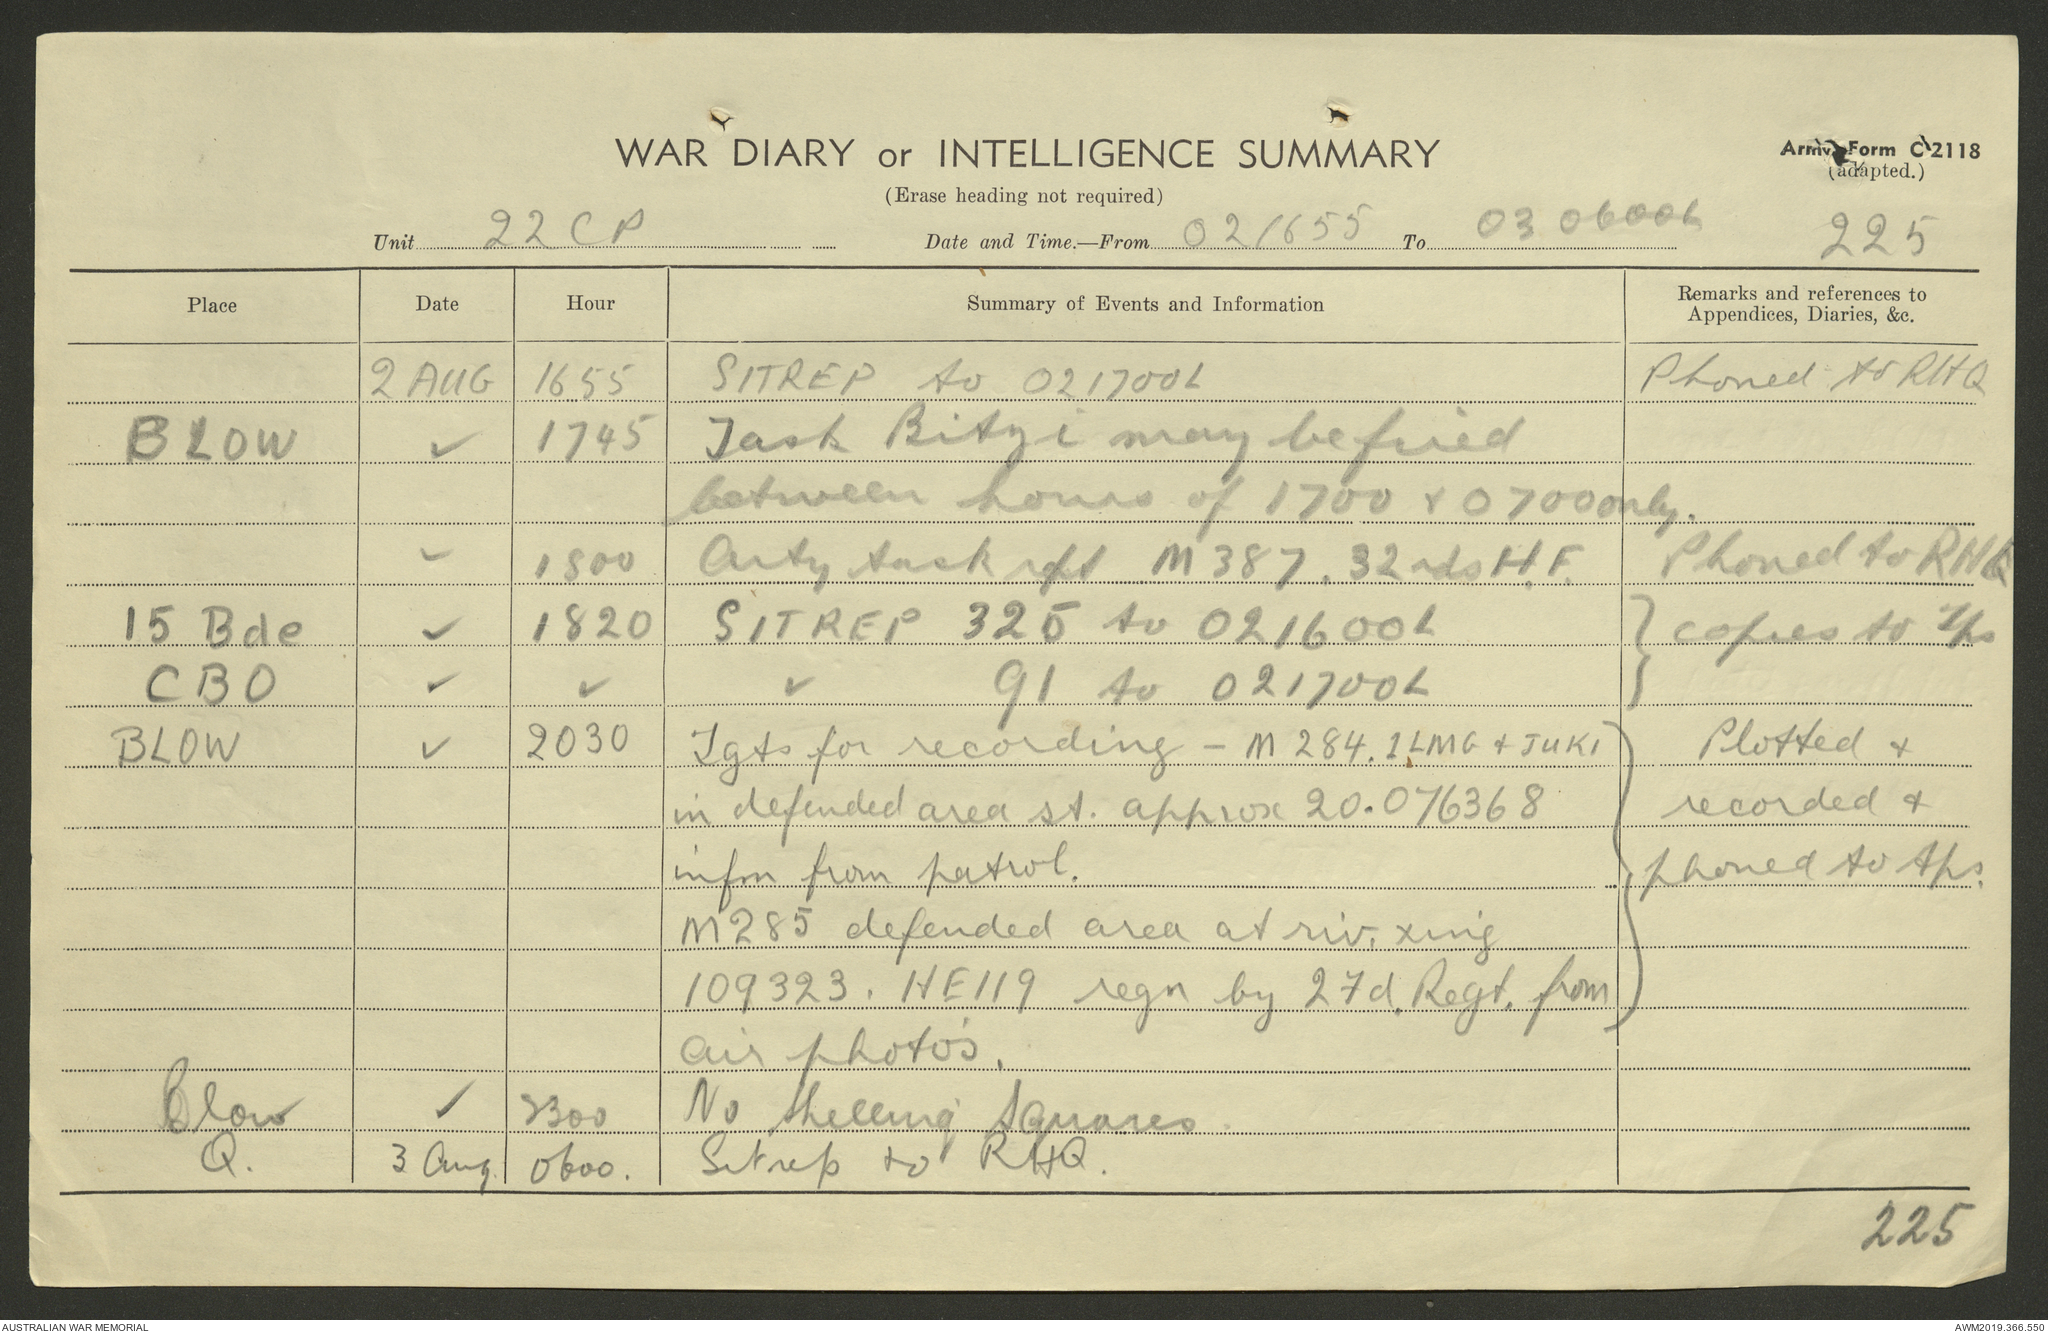 WAR DIARY or INTELLIGENCE SUMMARY
Army Form C 2118
(adapted.)
(Erase heading not required)
Unit 22 CP Date and Time.—From 021655 To 03 0600L 225
Place Date Hour Summary of Events and Information Remarks and references to Appendices, Diaries, &c.
2 AUG 1655 SITREP to 021700L Phoned to RHQ
BLOW ✓ 1745 Task Bityi may be fired
between hours of 1700 & 0700 only.
✓ 1800 Arty task rept M387. 32 rds H.E. Phoned to RHQ
15 Bde ✓ 1820 SITREP 325 to 021600L } copies to tps
CBO ✓ ✓ ✓ 91 to 021700L
BLOW ✓ 2030 Tgts for recording - M 284. 1 LMG & JUKI Plotted &
in defended area st. approx 20.076368 recorded &
infm from patrol. phoned to tps.
M285 defended area at riv. xing
109323. HE119 regn by 27d. Regt. from
air photo's.
Blow ✓ 2300 No shelling squares.
Q. 3 Aug. 0600. Sitrep to RHQ.
225
AUSTRALIAN WAR MEMORIAL
AWM2019.366.550